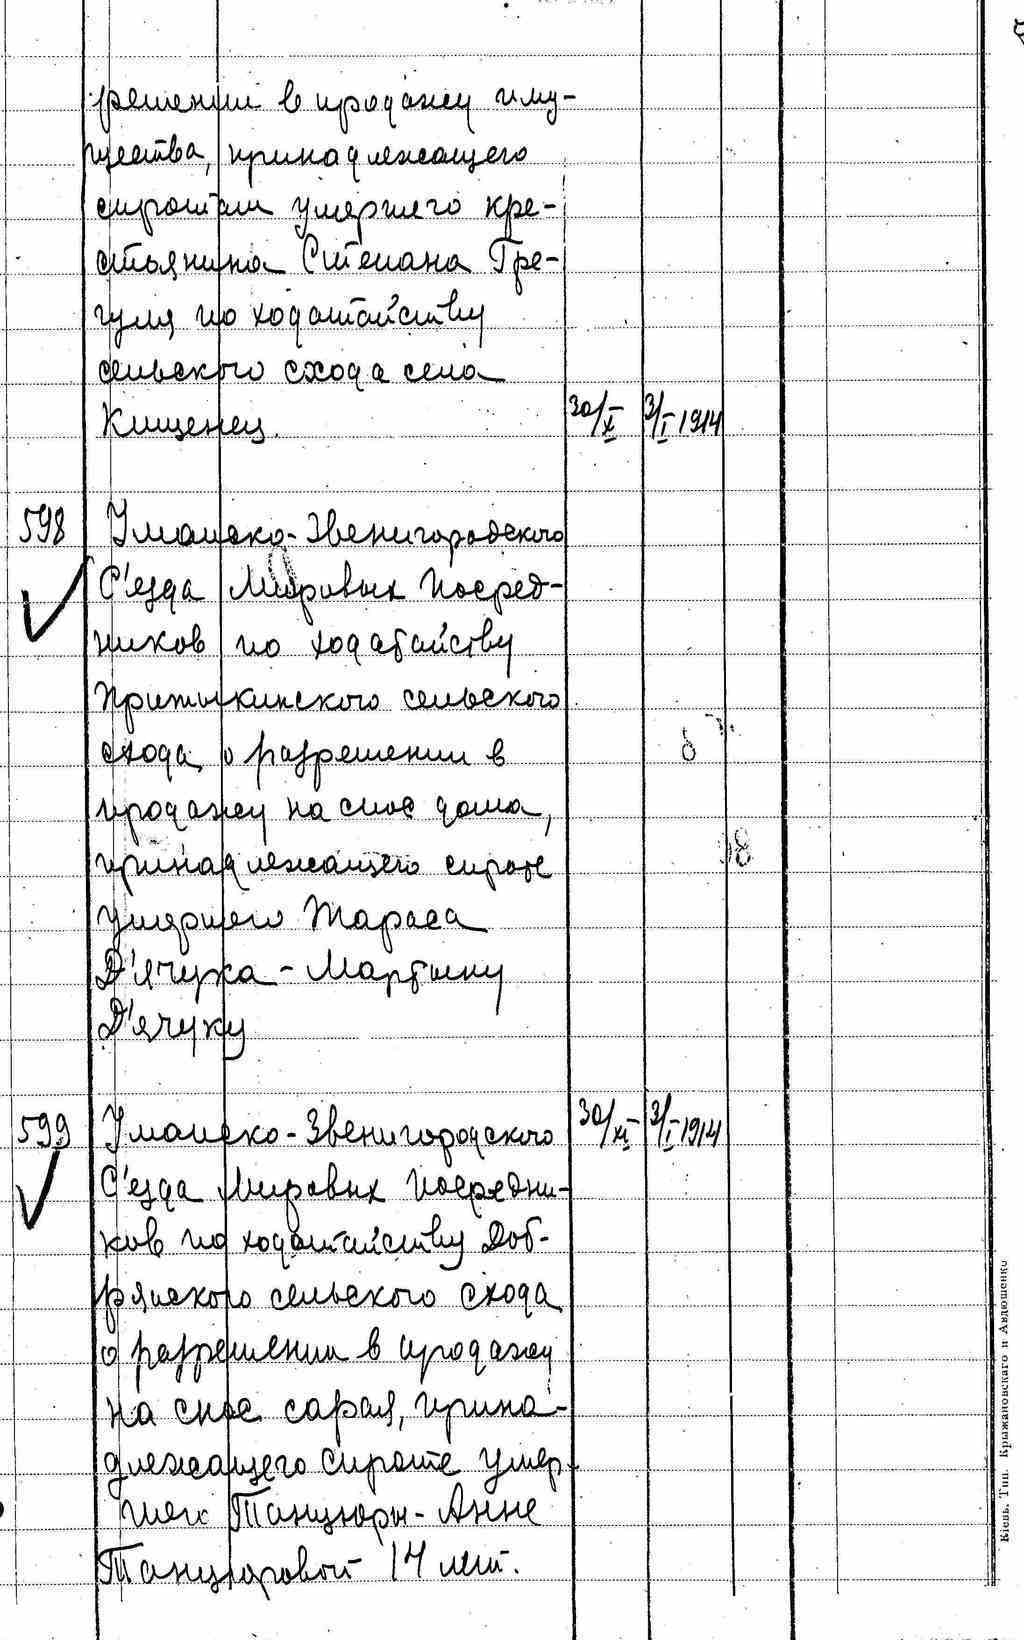 решении в продажу иму-
щества, принадлежащего
сиротам умершего кре-
стьянина Степана Гре-
гуля по ходатайству
сельского схода села
Кищенец. 30/X 3/I 1914
598 Уманско-Звенигородского
С'езда Мировых Посред-
ников по ходатайству
Притыкинского сельского
схода о разрешении в
продажу на снос дома,
принадлежащего сироте
умершего Тараса
Д'ячука - Мартыну
Д'ячуку
599 Уманско-Звенигородского 30/XI 3/I 1914
С'езда Мировых Посредни-
ков по ходатайству Доб-
рянского сельского схода
о разрешении в продажу
на снос сарая, прина-
длежащего сироте умер-
Танцюры - Анне
Танцюровой 14 лет.
Кіевъ. Тип. Крыжановскаго и Авдюшенко